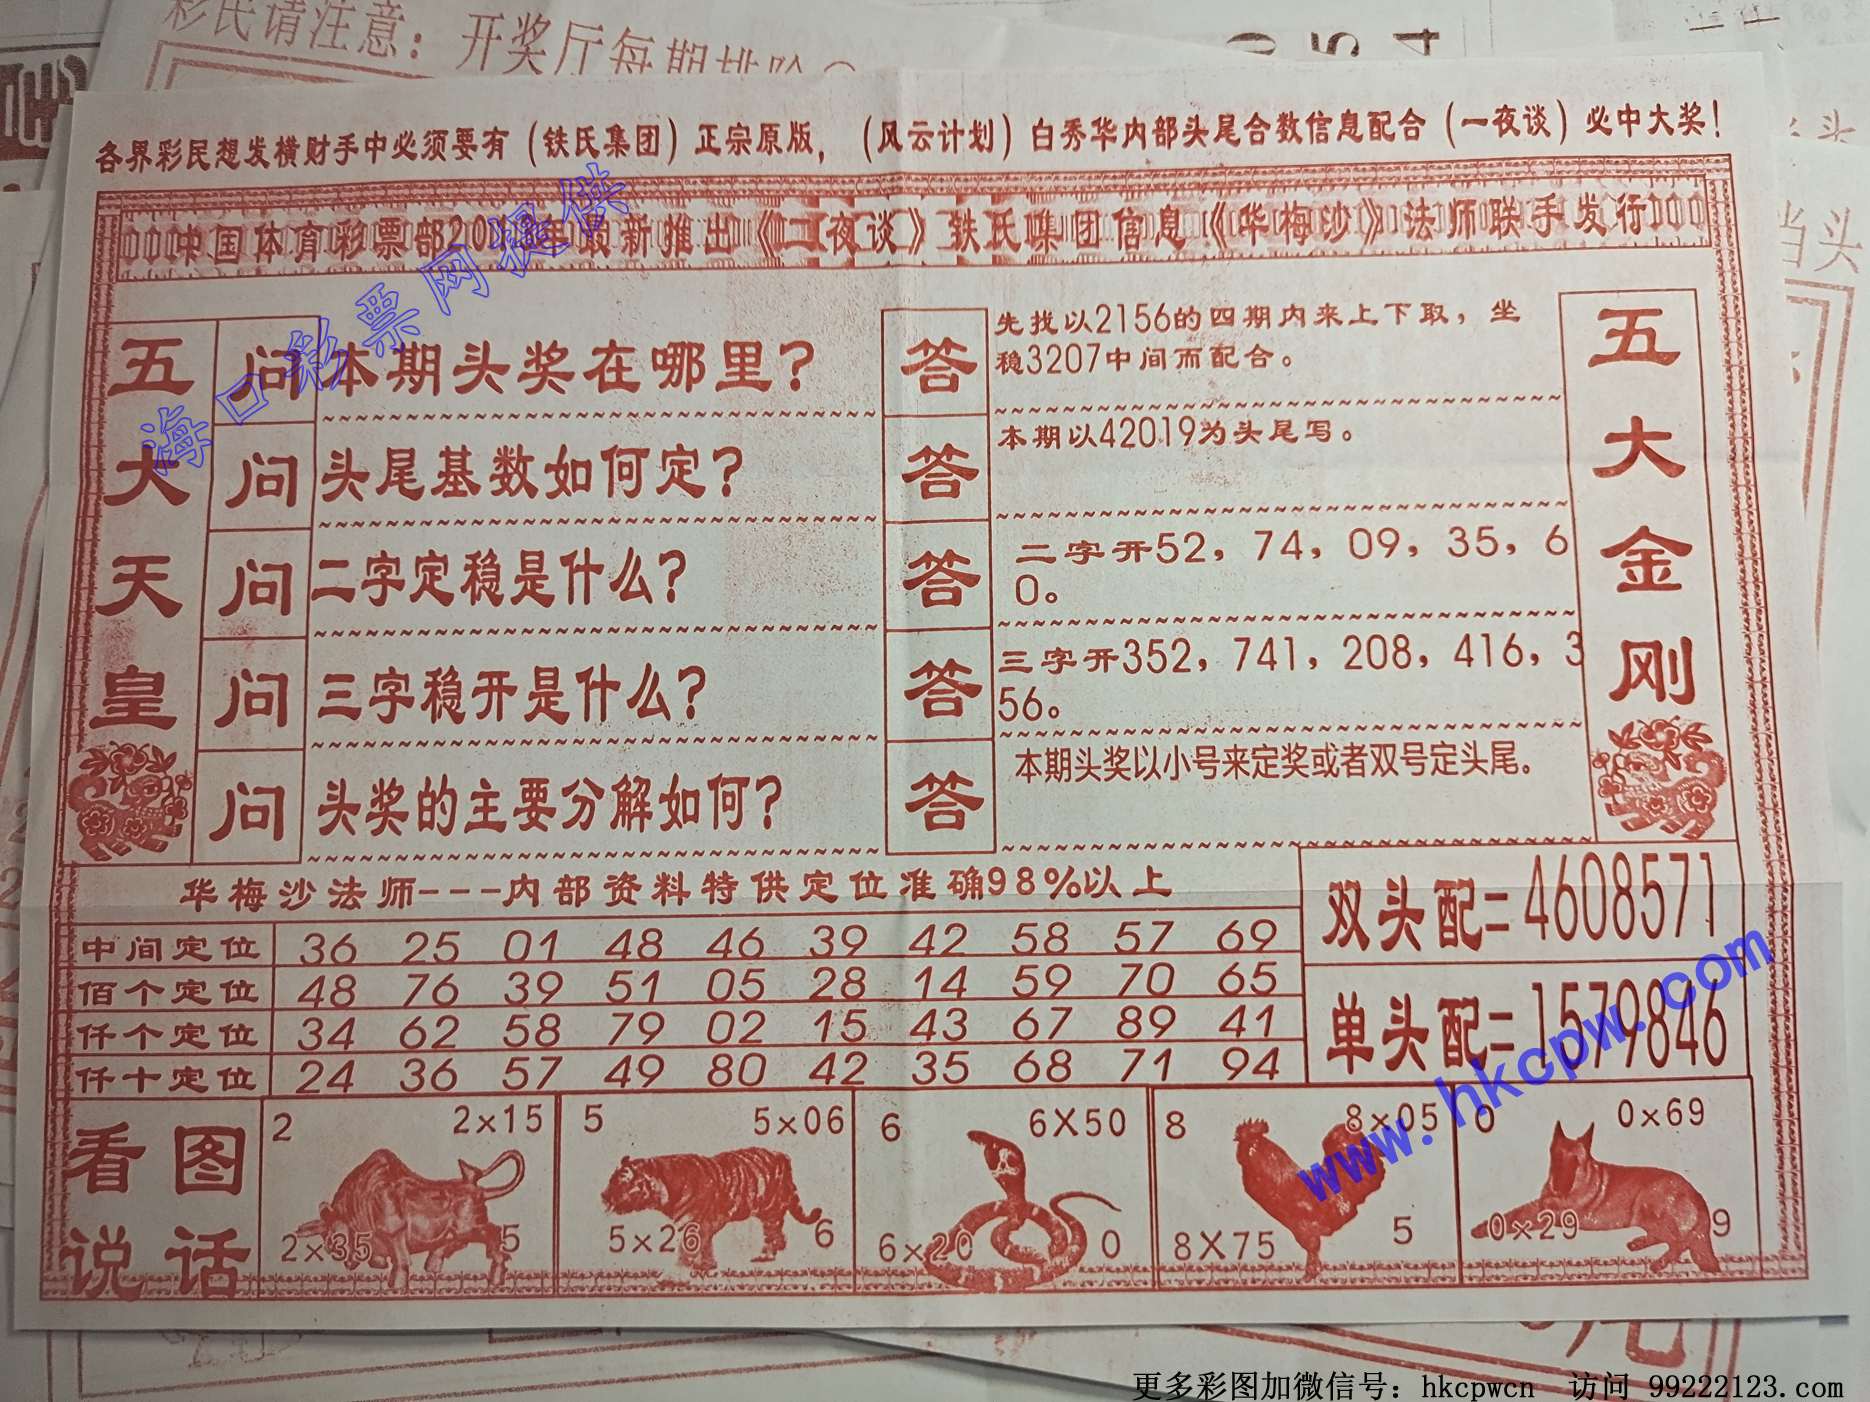 彩民请注意：开奖厅每期
054
各界彩民想发横财手中必须要有（铁氏集团）正宗原版，（风云计划）白秀华内部头尾合数信息配合（一夜谈）必中大奖！
中国体育彩票部20 年最新推出《一夜谈》铁氏集团信息《华梅沙》法师联手发行
海口彩票网提供
五大天皇
问 本期头奖在哪里？
答 先找以2156的四期内来上下取，坐
稳3207中间而配合。
问 头尾基数如何定？
答 本期以42019为头尾写。
问 二字定稳是什么？
答 二字开52，74，09，35，6
0。
问 三字稳开是什么？
答 三字开352，741，208，416，3
56。
问 头奖的主要分解如何？
答 本期头奖以小号来定奖或者双号定头尾。
五大金刚
华梅沙法师---内部资料特供定位准确98%以上
中间定位 36 25 01 48 46 39 42 58 57 69
佰个定位 48 76 39 51 05 28 14 59 70 65
仟个定位 34 62 58 79 02 15 43 67 89 41
仟十定位 24 36 57 49 80 42 35 68 71 94
双头配=4608571
单头配=1579846
www.hkcpw.com
看图
说话
2 2×15
2×35 5
5 5×06
5×26 6
6 6X50
6×20 0
8 8×05
8X75 5
0 0×69
0×29 9
更多彩图加微信号：hkcpwcn 访问 99222123.com